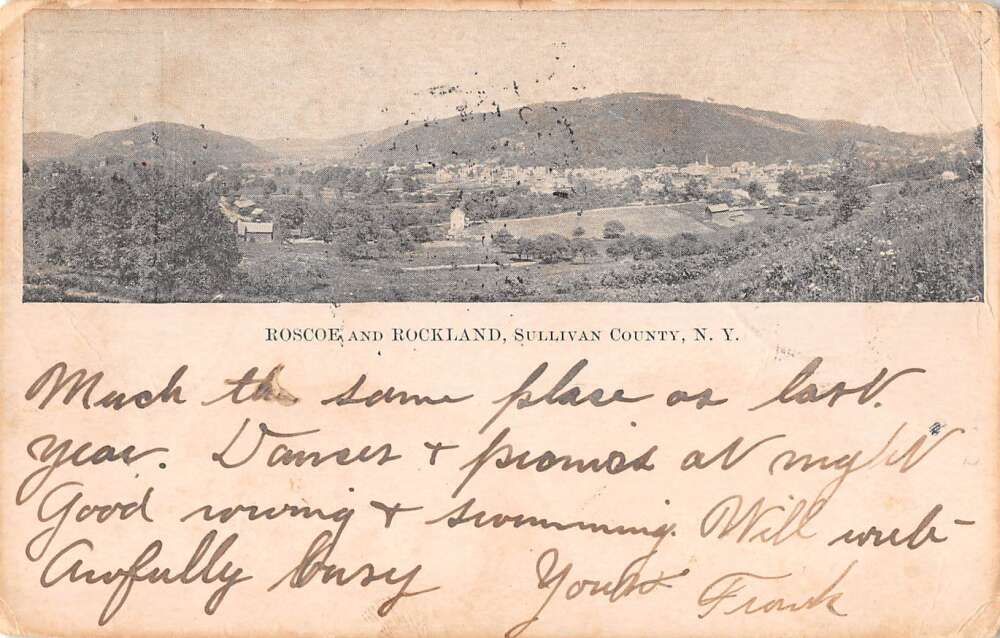 ROSCOE AND ROCKLAND, SULLIVAN COUNTY, N. Y.
Much the same place as last.
year. Dances + picnics at night
Good rowing + swimming. Will write
Awfully busy Yours Frank